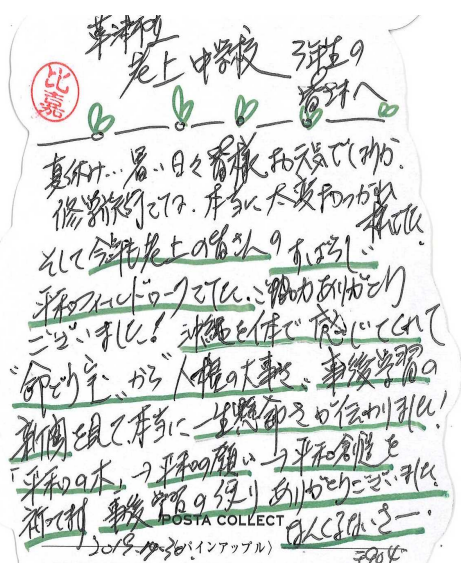 草津市立
老上中学校 3年生の
皆様へ
比嘉
夏休み…暑い日々皆様お元気ですか。
修学旅行では、本当に大変おつかれ
様でした。
そして今年も老上の皆さんのすばらしい
平和フィールドワークでした。ご協力ありがとう
ございました! 沖縄を体で感じてくれて
"命どぅ宝"から人権の大事さ、事後学習の
新聞を見て、本当に一生懸命さが伝わりました!
「平和の木」→平和の願い→平和創造を
祈って 事後学習の便りありがとうございました
POSTA COLLECT
なんくるないさー。
パインアップル〉